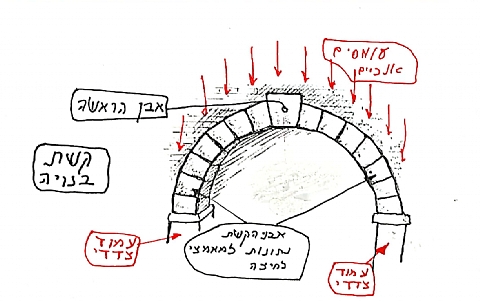 עומסים
אנכיים
אבן הראשה
קשת
בנויה
אבני הקשת
נתונות למאמצי
לחיצה
עמוד
צדדי
עמוד
צדדי